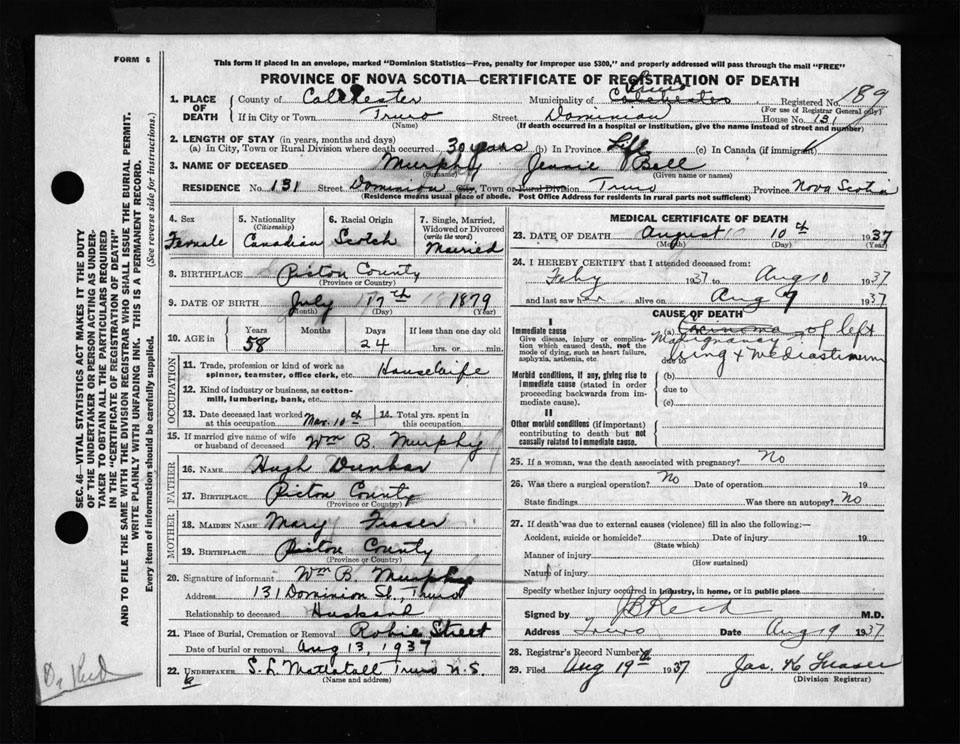 FORM 6
This form if placed in an envelope, marked "Dominion Statistics—Free, penalty for improper use $300," and properly addressed will pass through the mail "FREE"
PROVINCE OF NOVA SCOTIA—CERTIFICATE OF REGISTRATION OF DEATH
1. PLACE OF DEATH County of Colchester Municipality of Colchester Truro Registered No. 189
(For use of Registrar General only)
If in City or Town Truro Street Dominion House No. 131
(Name) (If death occurred in a hospital or institution, give the name instead of street and number)
2. LENGTH OF STAY (in years, months and days)
(a) In City, Town or Rural Division where death occurred 30 years (b) In Province Life (c) In Canada (if immigrant)
3. NAME OF DECEASED Murphy Jennie Bell
(Surname) (Given name or names)
RESIDENCE No. 131 Street Dominion City, Town or Rural Division Truro Province Nova Scotia
(Residence means usual place of abode. Post Office Address for residents in rural parts not sufficient)
4. Sex Female
5. Nationality (Citizenship) Canadian
6. Racial Origin Scotch
7. Single, Married, Widowed or Divorced (write the word) Married
8. BIRTHPLACE Pictou County
(Province or Country)
9. DATE OF BIRTH July 17th 1879
(Month) (Day) (Year)
10. AGE in Years 58 Months Days 24 If less than one day old hrs. or min.
OCCUPATION
11. Trade, profession or kind of work as spinner, teamster, office clerk, etc. Housewife
12. Kind of industry or business, as cotton-mill, lumbering, bank, etc.
13. Date deceased last worked at this occupation Mar. 10th
14. Total yrs. spent in this occupation
15. If married give name of wife or husband of deceased Wm B. Murphy
FATHER
16. NAME Hugh Dunbar
17. BIRTHPLACE Pictou County
(Province or Country)
MOTHER
18. MAIDEN NAME Mary Fraser
19. BIRTHPLACE Pictou County
(Province or Country)
20. Signature of informant Wm B. Murphy
Address 131 Dominion St., Truro
Relationship to deceased Husband
21. Place of Burial, Cremation or Removal Robie Street
Date of burial or removal Aug 13, 1937
22. UNDERTAKER S. L. Mattatall Truro N.S.
(Name and address)
MEDICAL CERTIFICATE OF DEATH
23. DATE OF DEATH August 10 10th 1937
(Month) (Day) (Year)
24. I HEREBY CERTIFY that I attended deceased from:
Feby 1937 to Aug 10 1937
and last saw her alive on Aug 9 1937
CAUSE OF DEATH
I
Immediate cause
Give disease, injury or complication which caused death, not the mode of dying, such as heart failure, asphyxia, asthenia, etc.
(a) Carcinoma of left
Malignancy
due to lung + mediastinum
Morbid conditions, if any, giving rise to immediate cause (stated in order proceeding backwards from immediate cause).
(b)
due to
(c)
II
Other morbid conditions (if important) contributing to death but not causally related to immediate cause.
25. If a woman, was the death associated with pregnancy? No
26. Was there a surgical operation? No Date of operation 19
State findings Was there an autopsy? No
27. If death was due to external causes (violence) fill in also the following:—
Accident, suicide or homicide? Date of injury 19
(State which)
Manner of injury
(How sustained)
Nature of injury
Specify whether injury occurred in industry, in home, or in public place
Signed by J B Reid M.D.
Address Truro Date Aug 19 1937
28. Registrar's Record Number
29. Filed Aug 19th 1937 Jas. K Fraser
(Division Registrar)
SEC. 46—VITAL STATISTICS ACT MAKES IT THE DUTY
OF THE UNDERTAKER OR PERSON ACTING AS UNDER-
TAKER TO OBTAIN ALL THE PARTICULARS REQUIRED
IN THE "CERTIFICATE OF REGISTRATION OF DEATH"
AND TO FILE THE SAME WITH THE DIVISION REGISTRAR WHO SHALL ISSUE THE BURIAL PERMIT.
WRITE PLAINLY WITH UNFADING INK. THIS IS A PERMANENT RECORD.
Every item of information should be carefully supplied. (See reverse side for instructions.)
Dr Reid